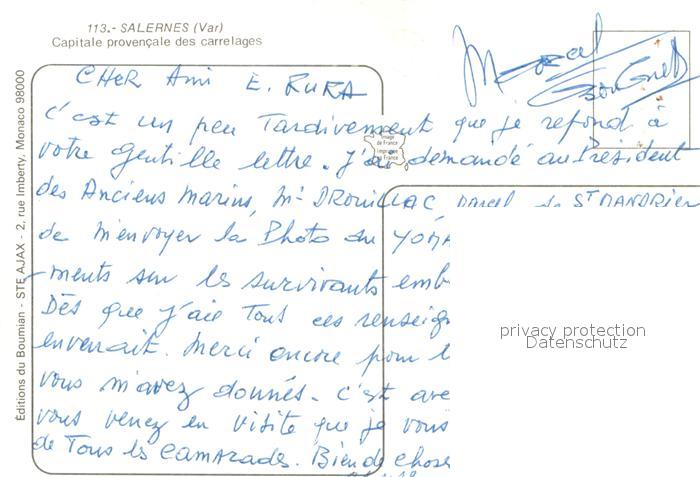 113.- SALERNES (Var)
Capitale provençale des carrelages
Éditions du Boumian - STE AJAX - 2, rue Imberty, Monaco 98000
Image de France
CHER Ami E. RUKA
c'est un peu Tardivement que je repond à
votre gentille lettre. J'ai demandé au Président
des Anciens Marins, Mr DROUILLAC Marcel de ST MANDRIER
de m'envoyer la Photo du YOM
-ments sur les survivants emb
Dès que j'aie Tous ces renseig
enverrait. Merci encore pour l
vous m'avez donnés. C'est ave
vous venez en visite que je vous
de Tous les Camarades. Bien de chose
privacy protection
Datenschutz